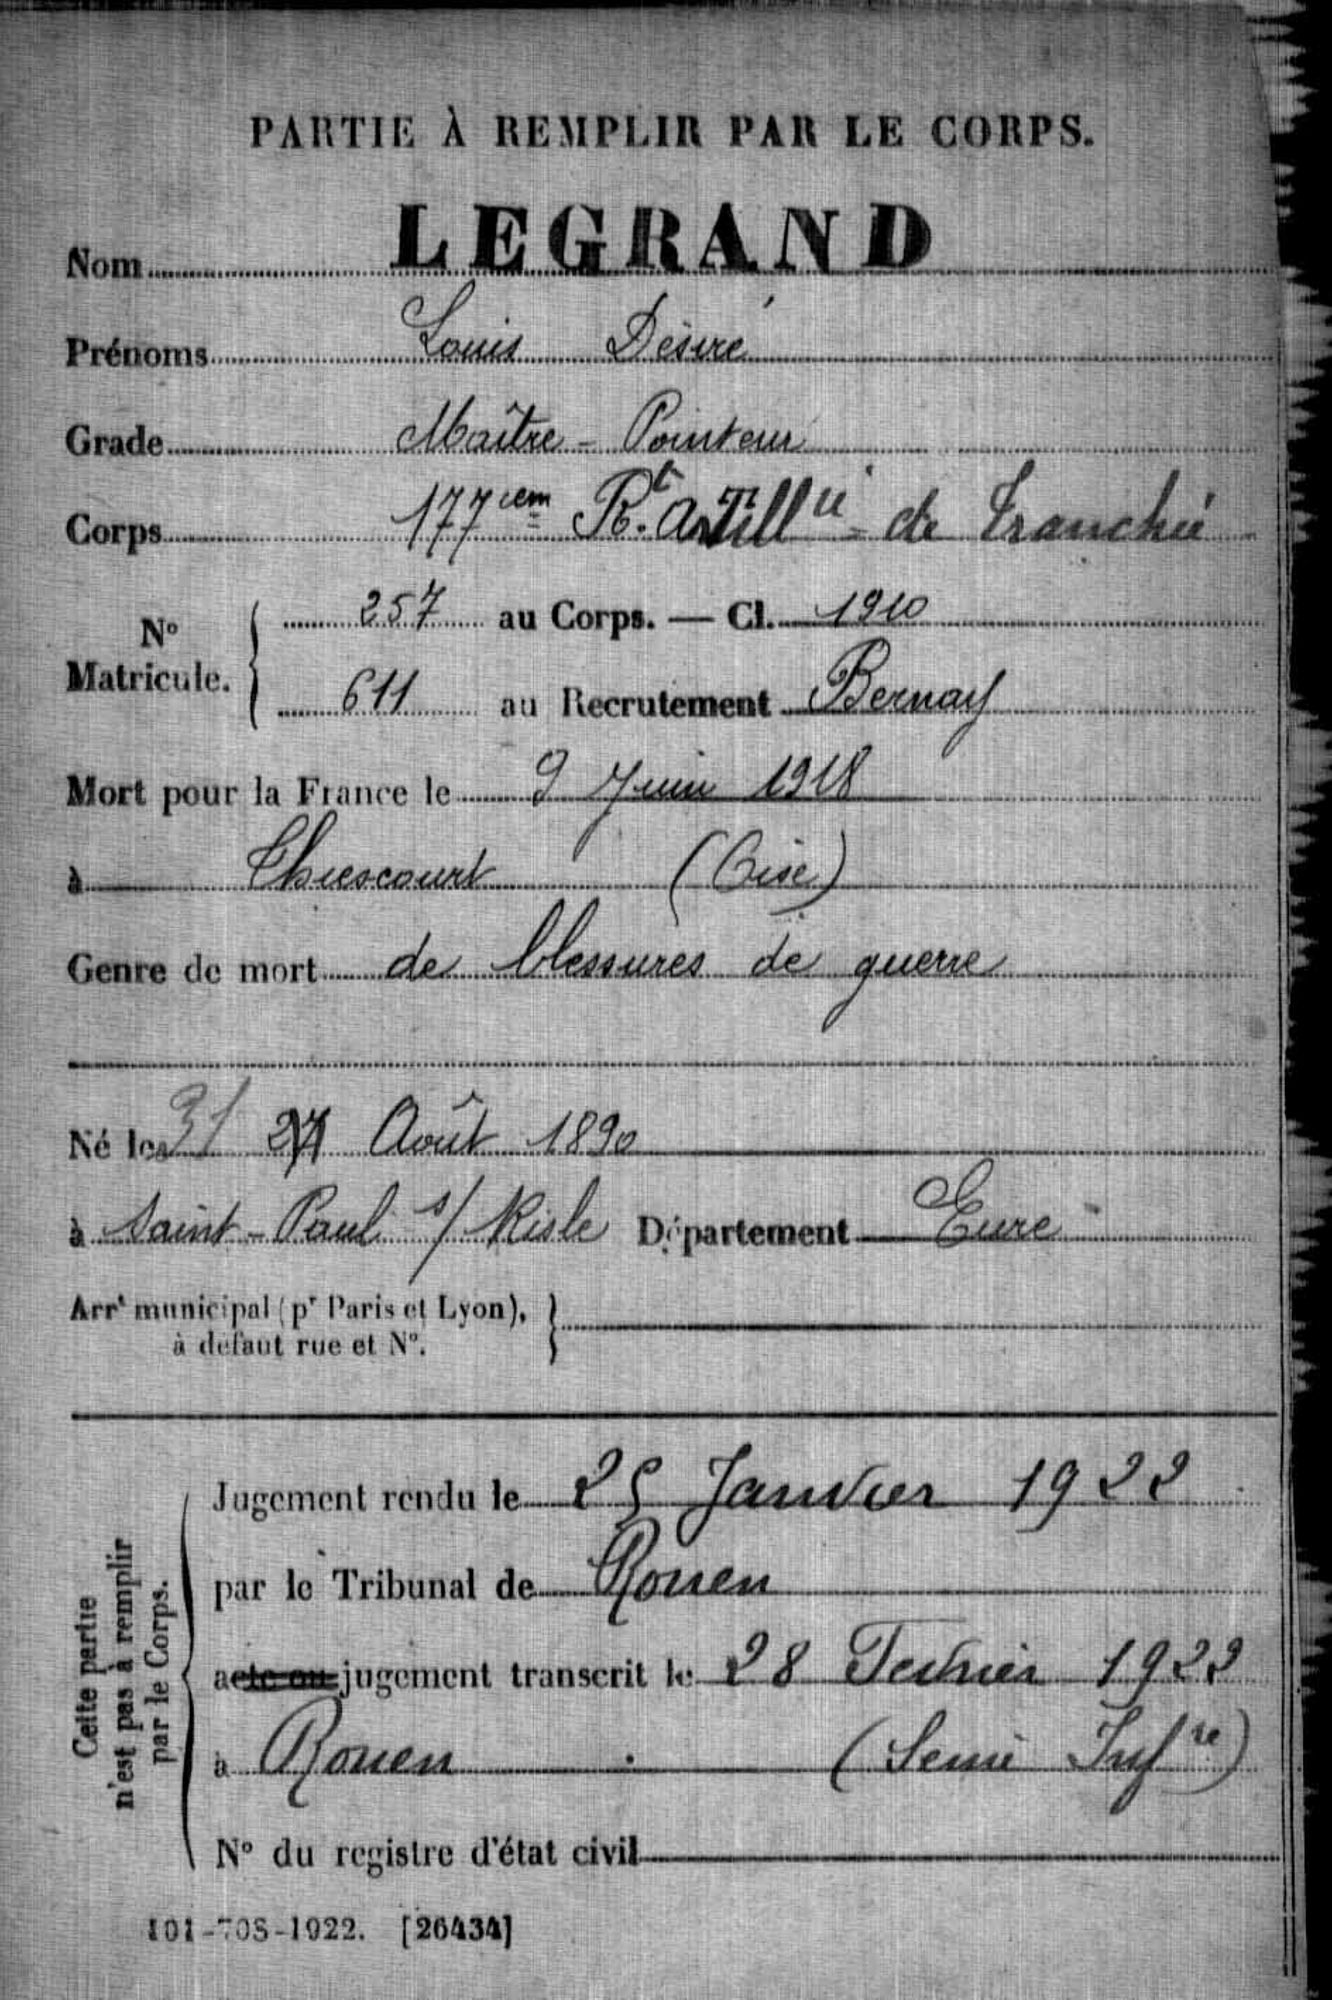 PARTIE À REMPLIR PAR LE CORPS.
Nom LEGRAND
Prénoms Louis Désiré
Grade Maître-Pointeur
Corps 177iem Rt. Artillie de Tranchée
No Matricule. 257 au Corps. — Cl. 1910
611 au Recrutement Bernay
Mort pour la France le 9 Juin 1918
à Thiescourt (Oise)
Genre de mort de blessures de guerre
Né le 31 27 Août 1890
à Saint-Paul s/ Risle Département Eure
Arrt municipal (pr Paris et Lyon),
à défaut rue et No.
Cette partie
n'est pas à remplir
par le Corps.
Jugement rendu le 25 Janvier 1922
par le Tribunal de Rouen
acte ou jugement transcrit le 28 Fevrier 1922
à Rouen (Seine Infre)
No du registre d'état civil
101-708-1922. [26434]